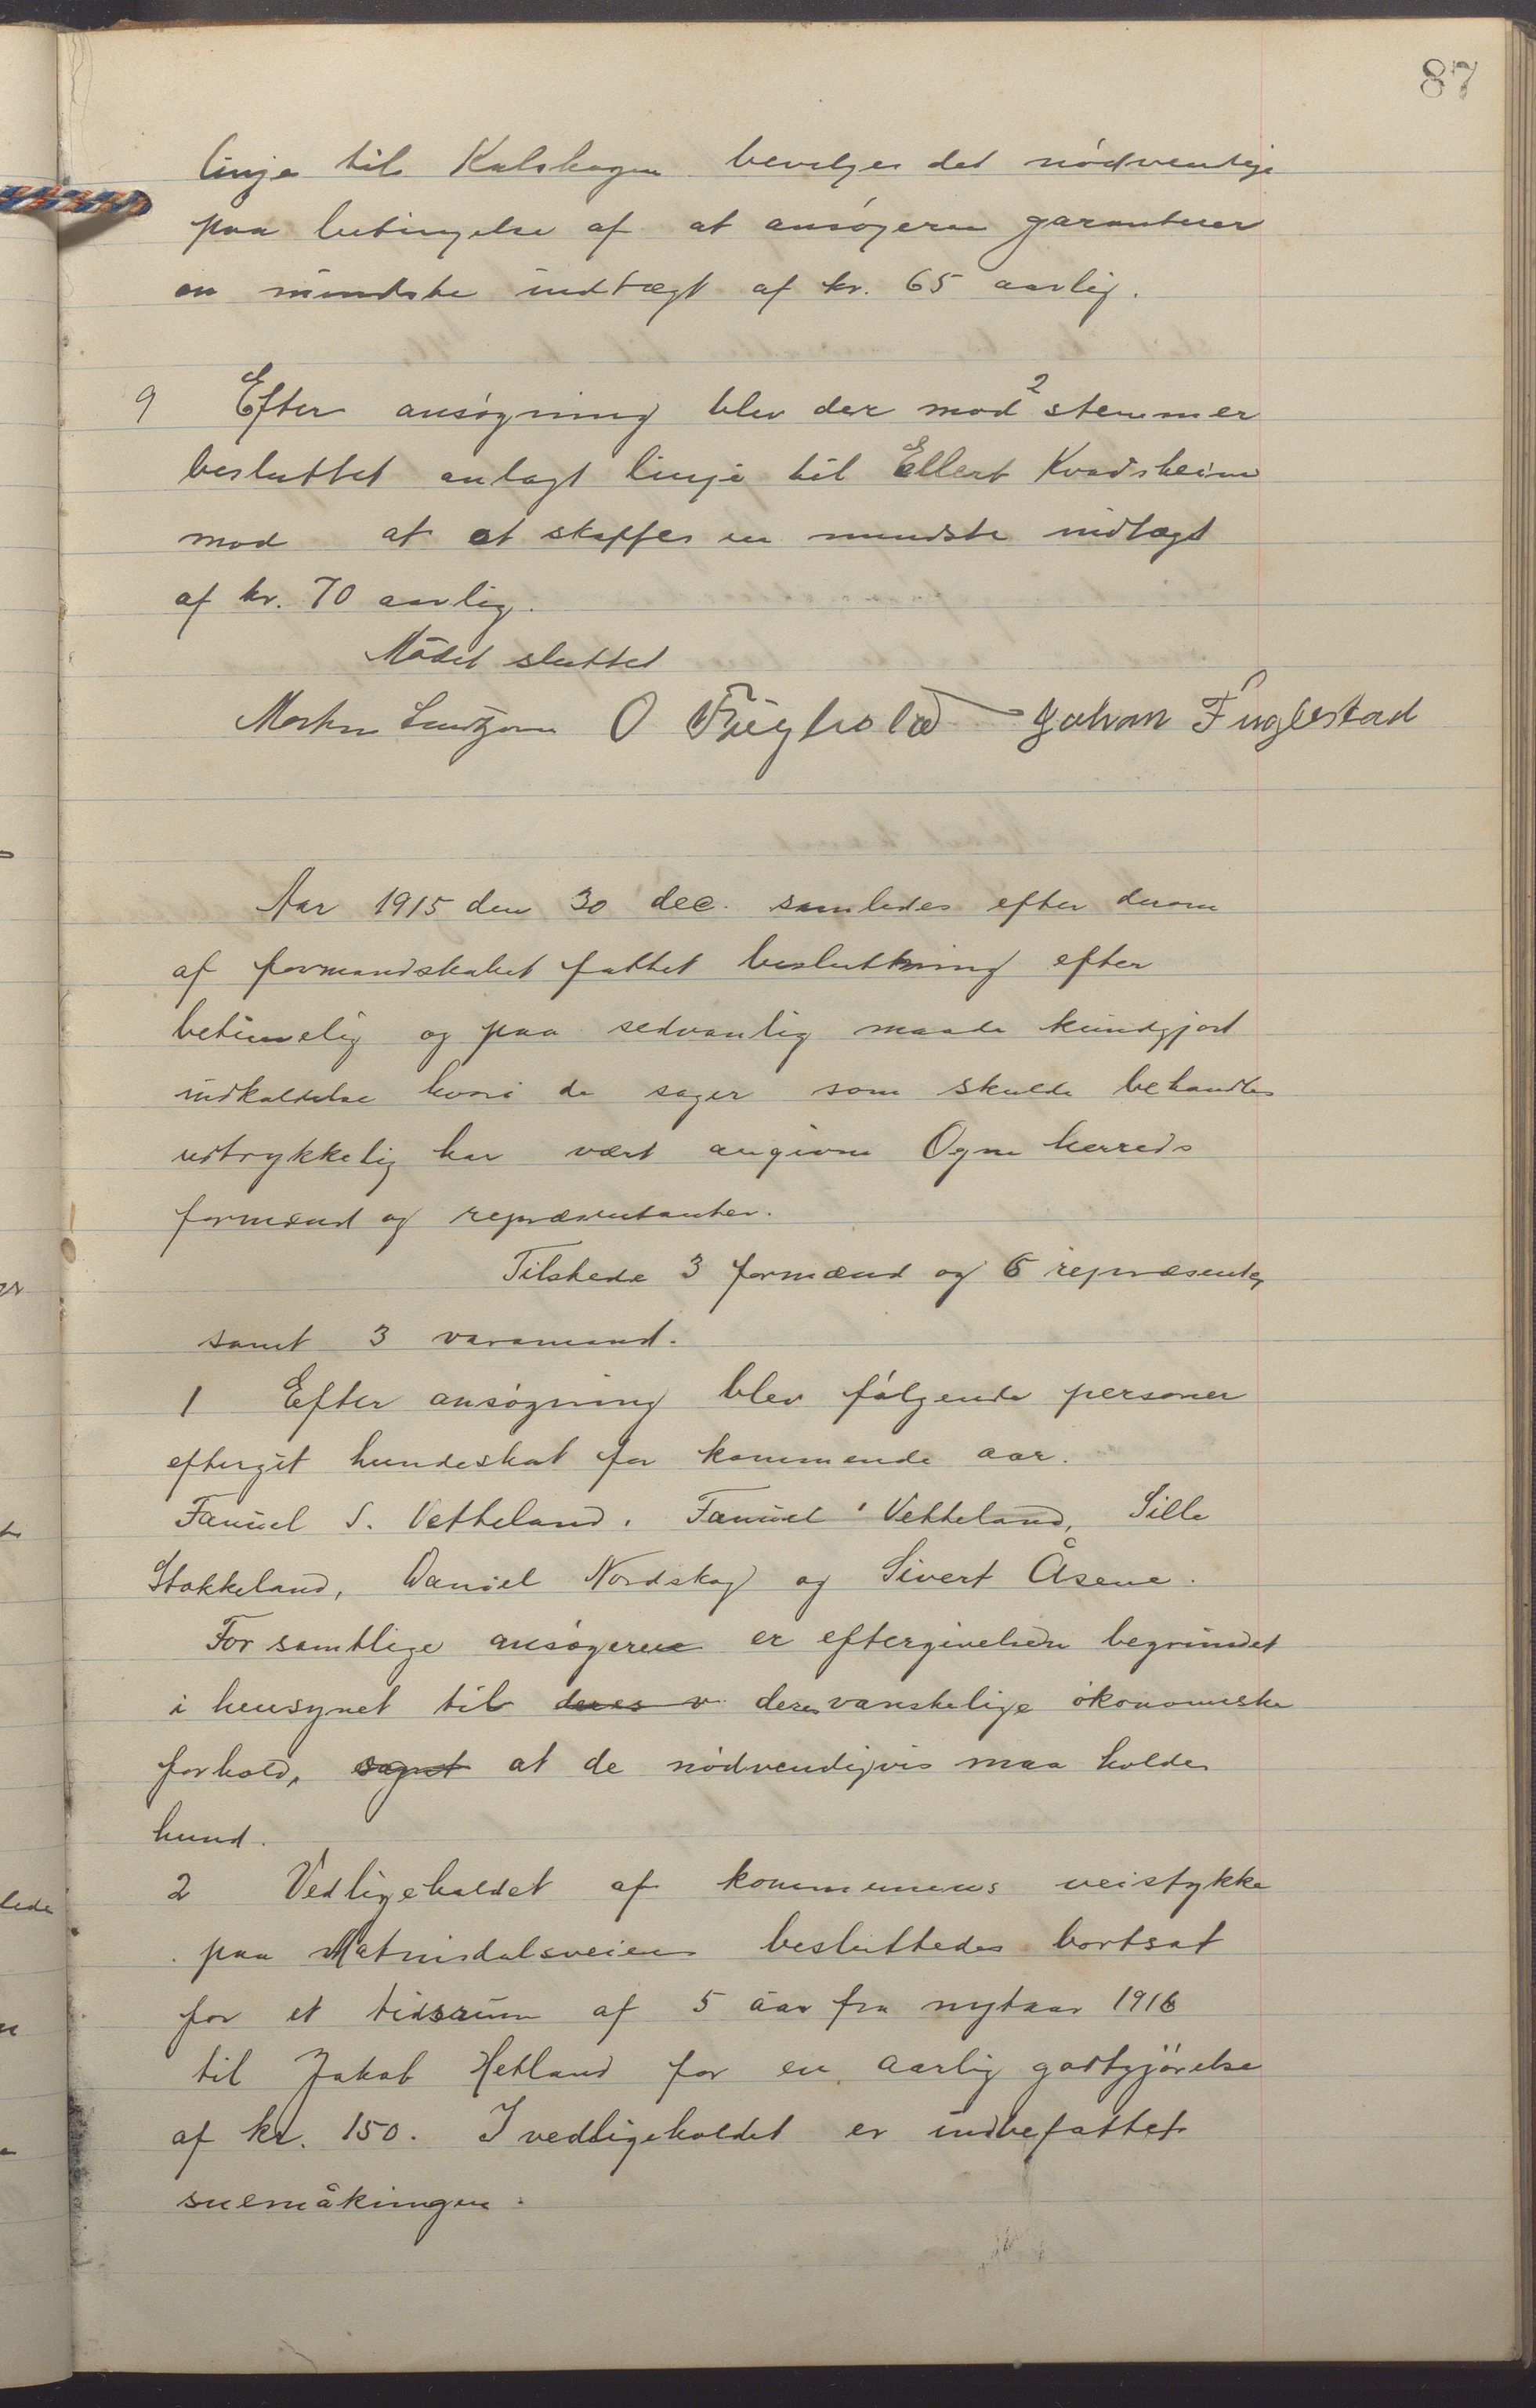 87
linje til Kalskagen bevilges det nödvendige
paa betingelse af at ansögeren garanterer
en mindste indtægt af kr. 65 aarlig.
9 Efter ansögning blev der mod 2 stemmer
besluttet anlagt linje til Ellert Kvadsheim
mod at at skaffes en mindste indtægt
af kr. 70 aarlig.
Mödet sluttet
O Fuglestad Johan Fuglestad
Aar 1915 den 30 dec. samledes efter derom
af formandskabet fattet beslutning efter
betimelig og paa sedvanlig maade kundgjort
indkaldelse hvori de sager som skulde behandles
udtrykkelig har vært angivne Ogne herreds
formænd og repræsentanter.
Tilstede 3 formænd og 6 repræsentr
samt 3 varamænd.
1 Efter ansögning blev fölgende personer
eftergit hundeskat for kommende aar.
Fanuel S. Vetteland. Fanuel Vetteland, Sille
Stokkeland, Daniel Nordskog og Sivert Åsene.
For samtlige ansögerne er eftergivelsen begrundet
i hensynet til deres v deres vanskelige ökonomiske
forhold, samt at de nödvendigvis maa holde
hund.
2 Vedligeholdet af kommunens veistykke
paa Matnisdalsveien besluttedes bortsat
for et tidsrum af 5 aar fra nytaar 1916
til Jakob Hetland for en aarlig godtgjörelse
af kr. 150. I vedligeholdet er indbefattet
snemåkingen.